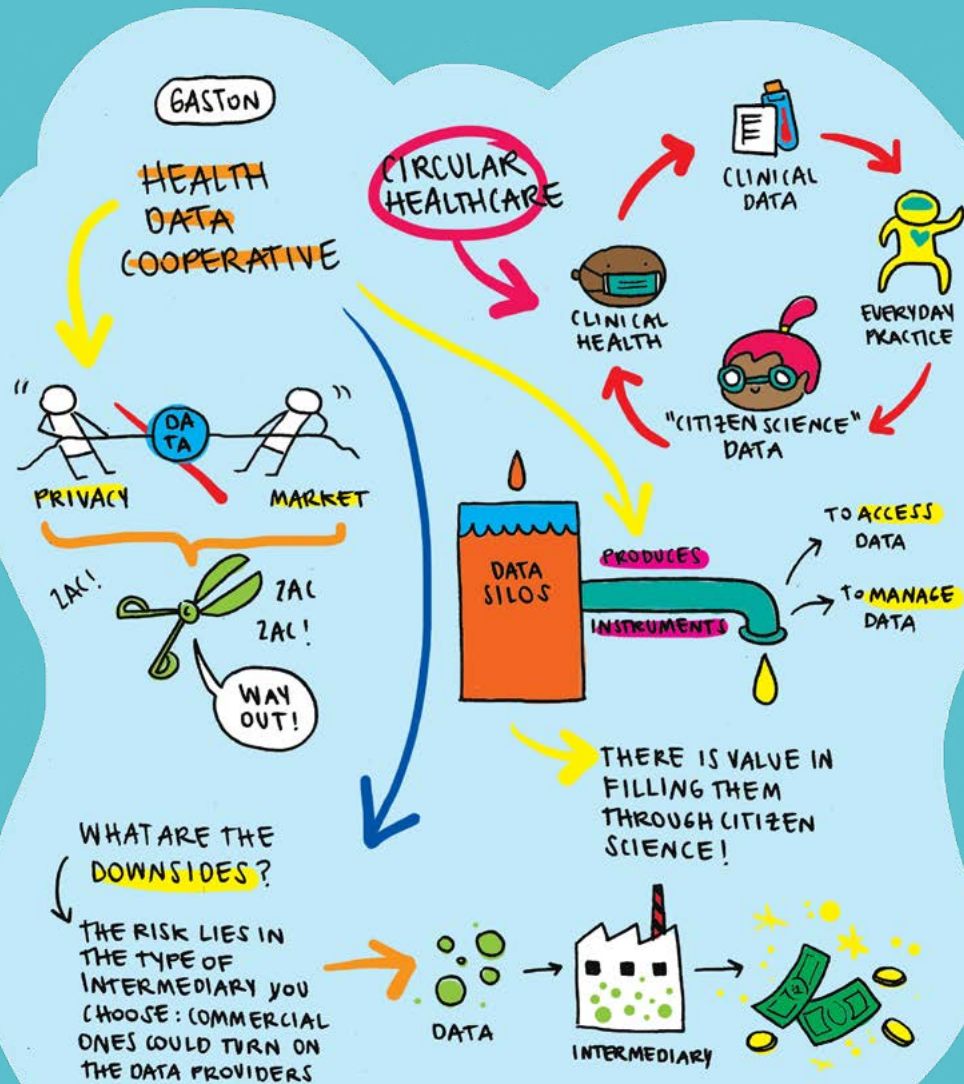 GASTON
HEALTH
DATA
COOPERATIVE
CIRCULAR
HEALTHCARE
CLINICAL
DATA
EVERYDAY
PRACTICE
"CITIZEN SCIENCE"
DATA
CLINICAL
HEALTH
DA
TA
PRIVACY
MARKET
ZAC!
ZAC
ZAC!
WAY
OUT!
DATA
SILOS
PRODUCES
INSTRUMENTS
TO ACCESS
DATA
TO MANAGE
DATA
THERE IS VALUE IN
FILLING THEM
THROUGH CITIZEN
SCIENCE!
WHAT ARE THE
DOWNSIDES?
THE RISK LIES IN
THE TYPE OF
INTERMEDIARY YOU
CHOOSE: COMMERCIAL
ONES COULD TURN ON
THE DATA PROVIDERS
DATA
INTERMEDIARY